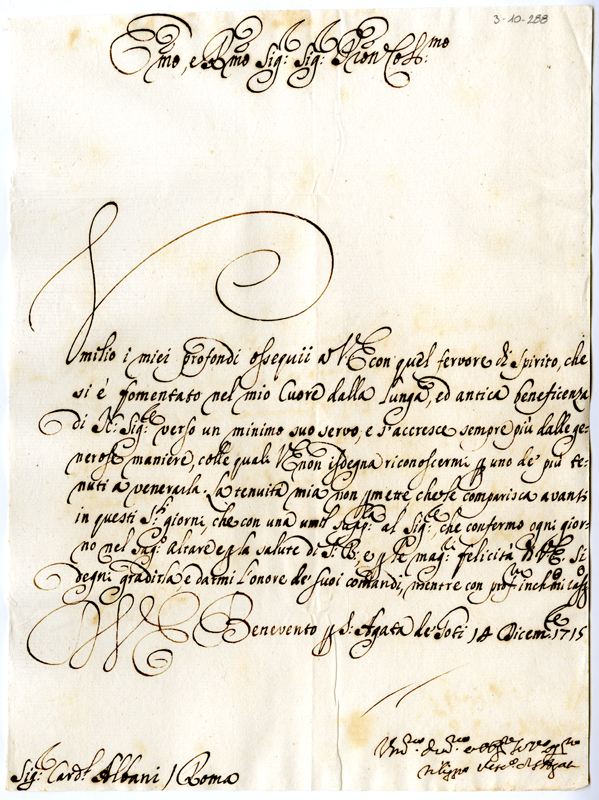 3-10-288
Emo, e Rmo Sig: Sig: Pron Col:mo
Vmilio i miei profondi ossequii a VE con quel fervore di Spirito, che
si é fomentato nel mio Cuore dalla lunga, ed antica beneficenza
di N: Sig:re verso un minimo suo servo, e s'accresce sempre più dalle ge-
nerose maniere, colle quali VE non isdegna riconoscermi p uno de più te-
nuti a venerarla. La tenuità mia non pmette che le comparisca avanti
in questi Sti giorni, che con una umil al Sig:re, che confermo ogni gior-
no nel Sag: altare e p la salute di S. B:, e p le mag:ri felicità di VE. Si
degni gradirla, e darmi l'onore de' suoi comandi, mentre con prof:mo inchino
VE Benevento p S. Agata de Goti 14 Dicem:re 1715
Filippo Vesc:o di S Agata
Sig:r Card:l Albani / Roma